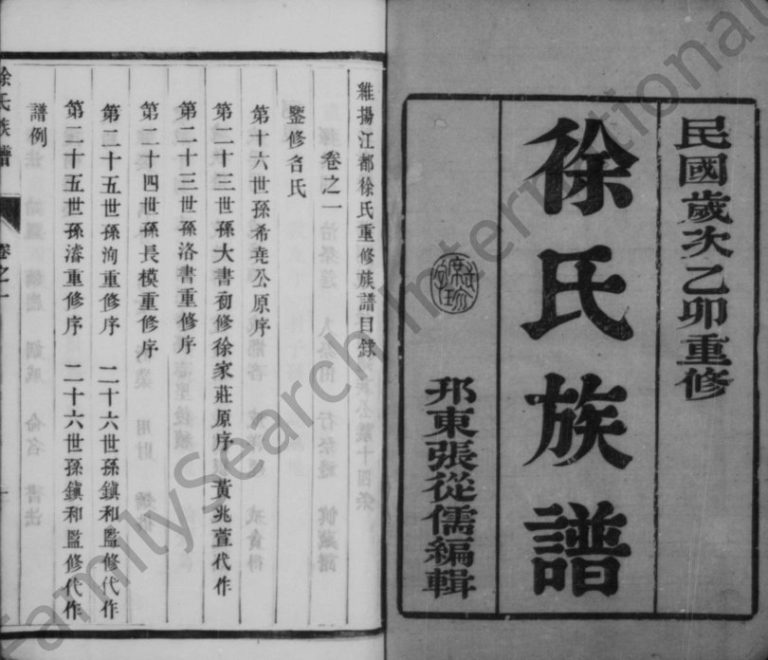 民國歲次乙卯重修
徐氏族譜
邗東張從儒編輯
維揚江都徐氏重修族譜目錄
卷之一
鑒修名氏
第十六世孫希堯公原序
第二十三世孫大書初修徐家莊原序 黃兆萱代作
第二十三世孫洛書重修序
第二十四世孫長模重修序
第二十五世孫洵重修序 二十六世孫鎮和監修代作
第二十五世孫濬重修序 二十六世孫鎮和監修代作
譜例
徐氏族譜
卷之一
FamilySearch International